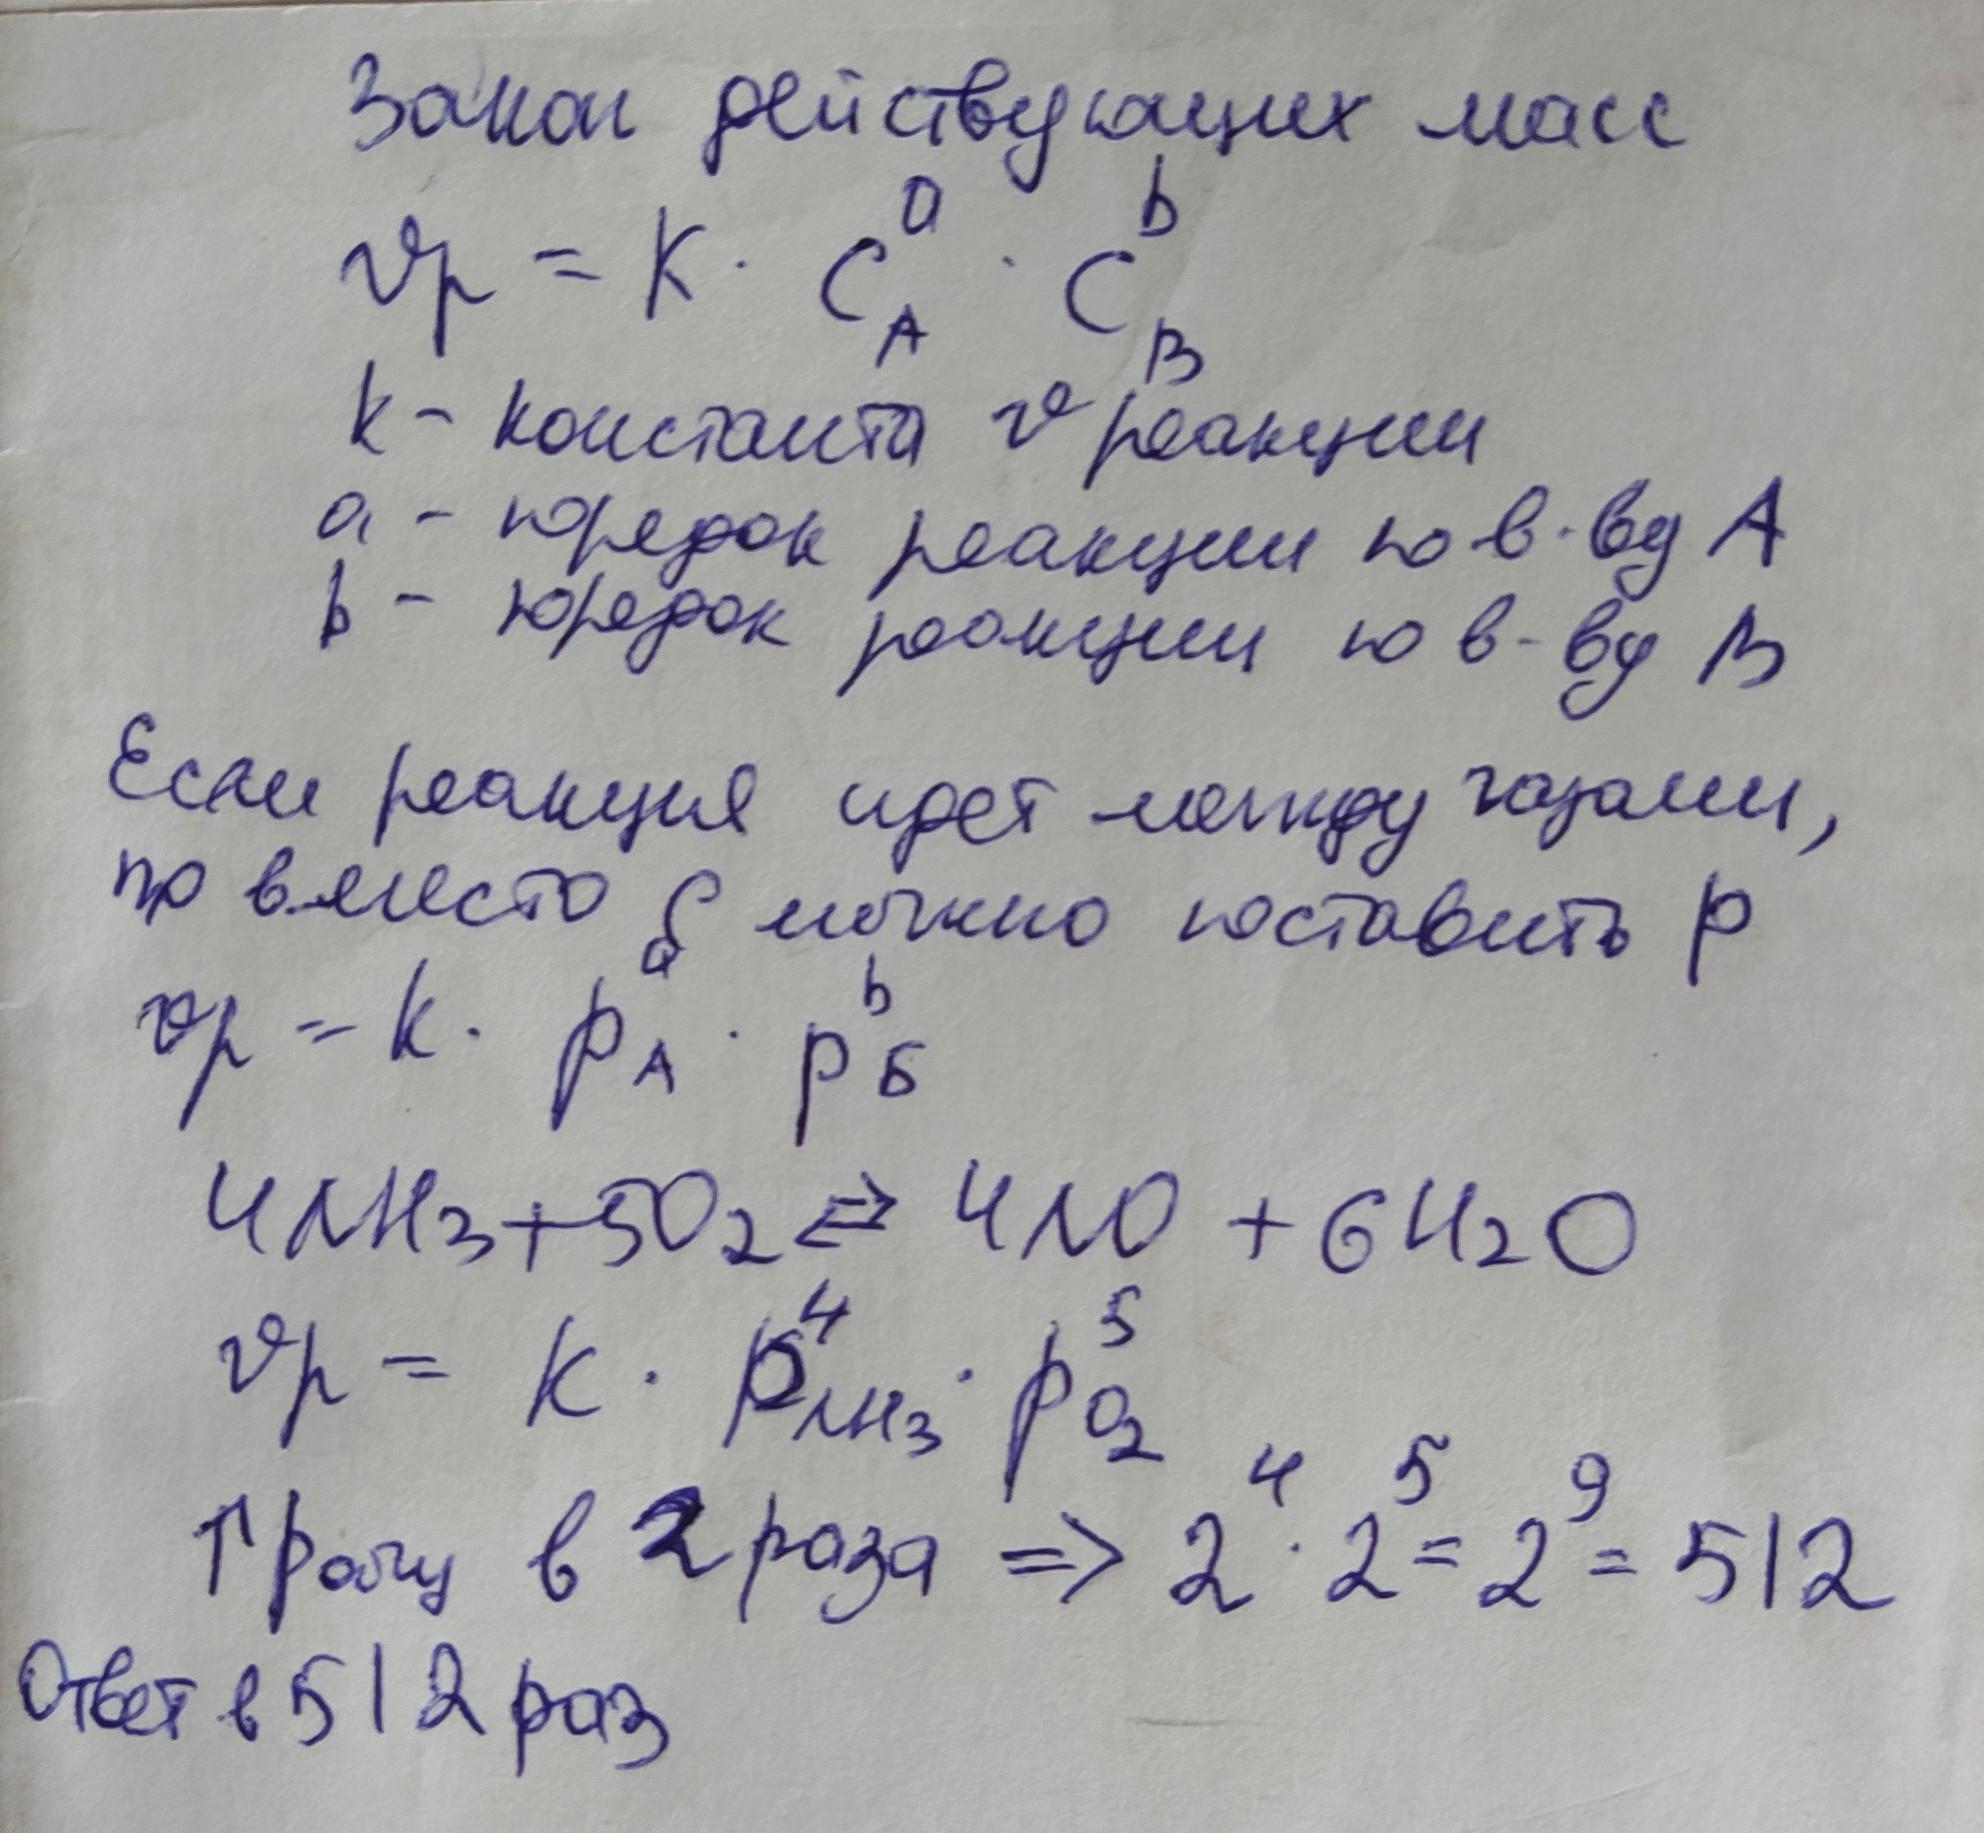 Закон действующих масс
vр = K · C_A^a · C_B^b
k - константа v реакции
a - порядок реакции по в-ву A
b - порядок реакции по в-ву B
Если реакция идет между газами,
то вместо C можно поставить p
vр = k · p_A^a · p_Б^b
4NH₃ + 5O₂ ⇌ 4NO + 6H₂O
vр = K · p_NH₃^4 · p_O₂^5
↑ pобщ в 2 раза => 2⁴ · 2⁵ = 2⁹ = 512
Ответ в 512 раз